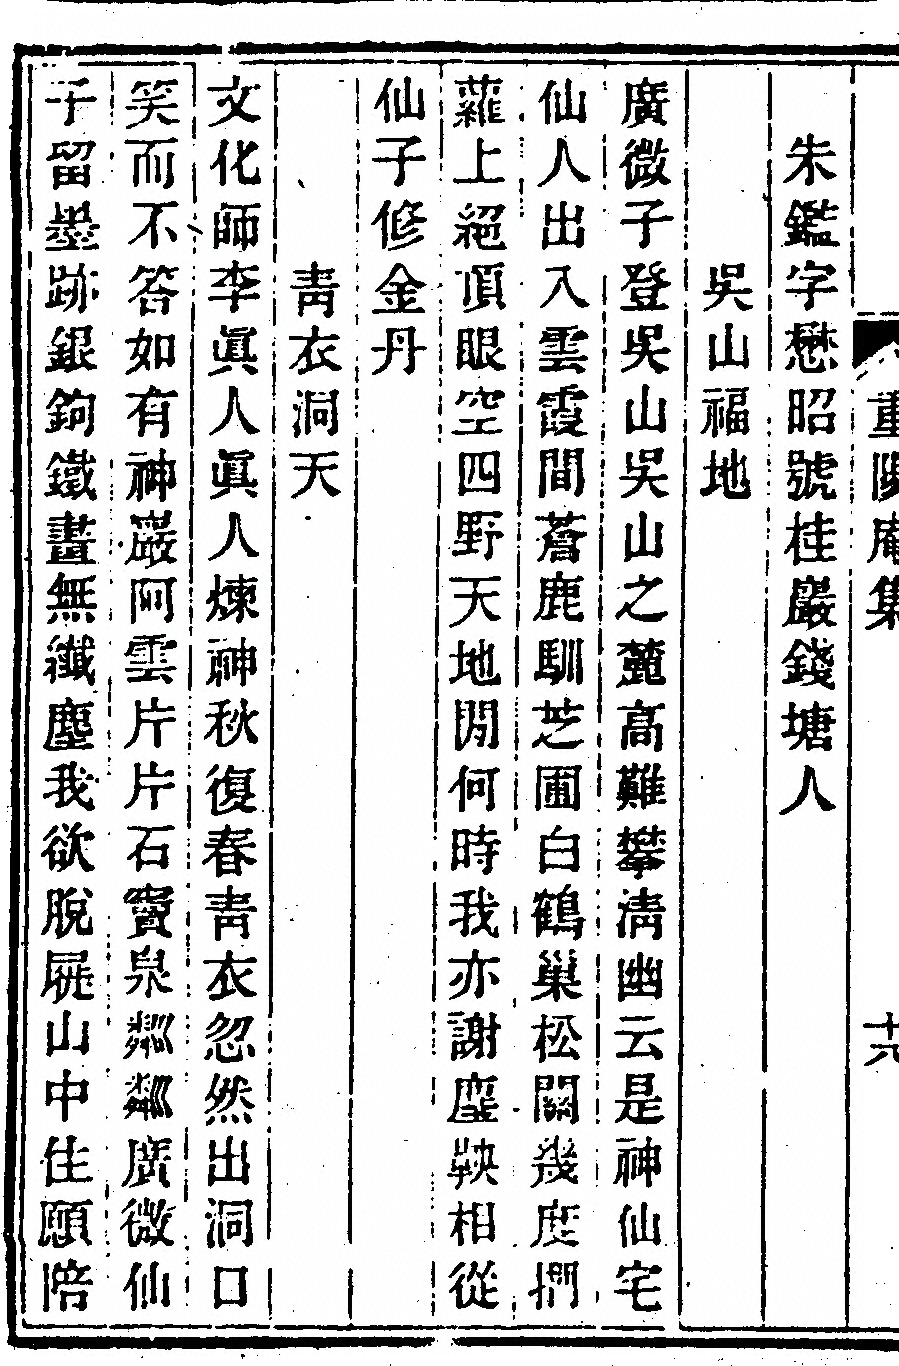 重陽庵集
十六
朱鑑字懋昭號桂巖錢塘人
吳山福地
廣微子登吳山吳山之麓高難攀淸幽云是神仙宅
仙人出入雲霞間蒼鹿馴芝圃白鶴巢松關幾度捫
蘿上絕頂眼空四野天地閒何時我亦謝塵鞅相從
仙子修金丹
靑衣洞天
文化師李眞人眞人煉神秋復春靑衣忽然出洞口
笑而不答如有神巖阿雲片片石竇泉粼粼廣微仙
子留墨跡銀鉤鐵畫無纖塵我欲脫屣山中住願陪